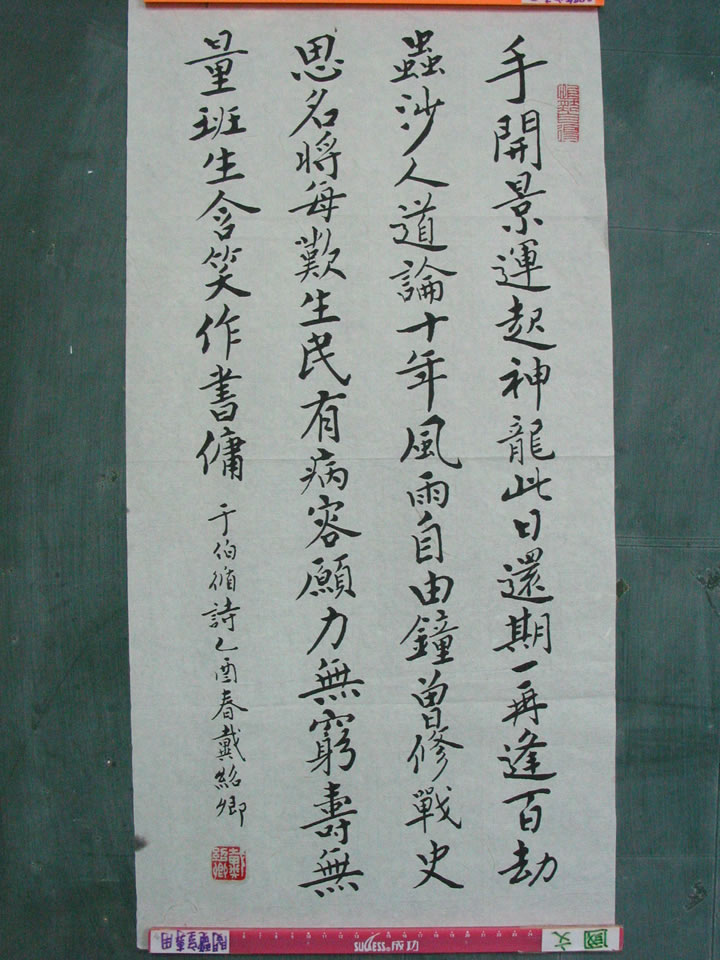 手開景運起神龍此日還期一再逢百劫
蟲沙人道論十年風雨自由鐘曾修戰史
思名將每歎生民有病容願力無窮壽無
量班生含笑作書傭
于伯循詩乙酉春戴紹卿
戴紹卿
SUCCESS® 成功
國文